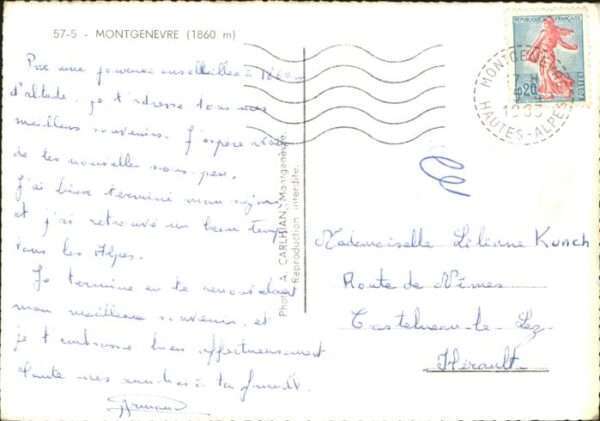 57-5 - MONTGENEVRE (1860 m)
Par une journée ensoleillée à 1860 m
d'altitude, je t'adresse tous mes
meilleurs souvenirs. J'espère avoir
de tes nouvelles sous peu.
J'ai bien terminé mon séjour
et j'ai retrouvé un beau temps
dans les Alpes.
Je termine en te renouvelant
mon meilleur souvenir et
je t'embrasse bien affectueusement
Toute mes amitiés à ta famille
Photo A. CARLHIAN, Montgenèvre
Reproduction interdite.
REPUBLIQUE FRANÇAISE
0,20
MONTGENEVRE
HAUTES-ALPES
Mademoiselle Liliane Kunch
Route de Nîmes
Castelnau-le-Lez
Hérault